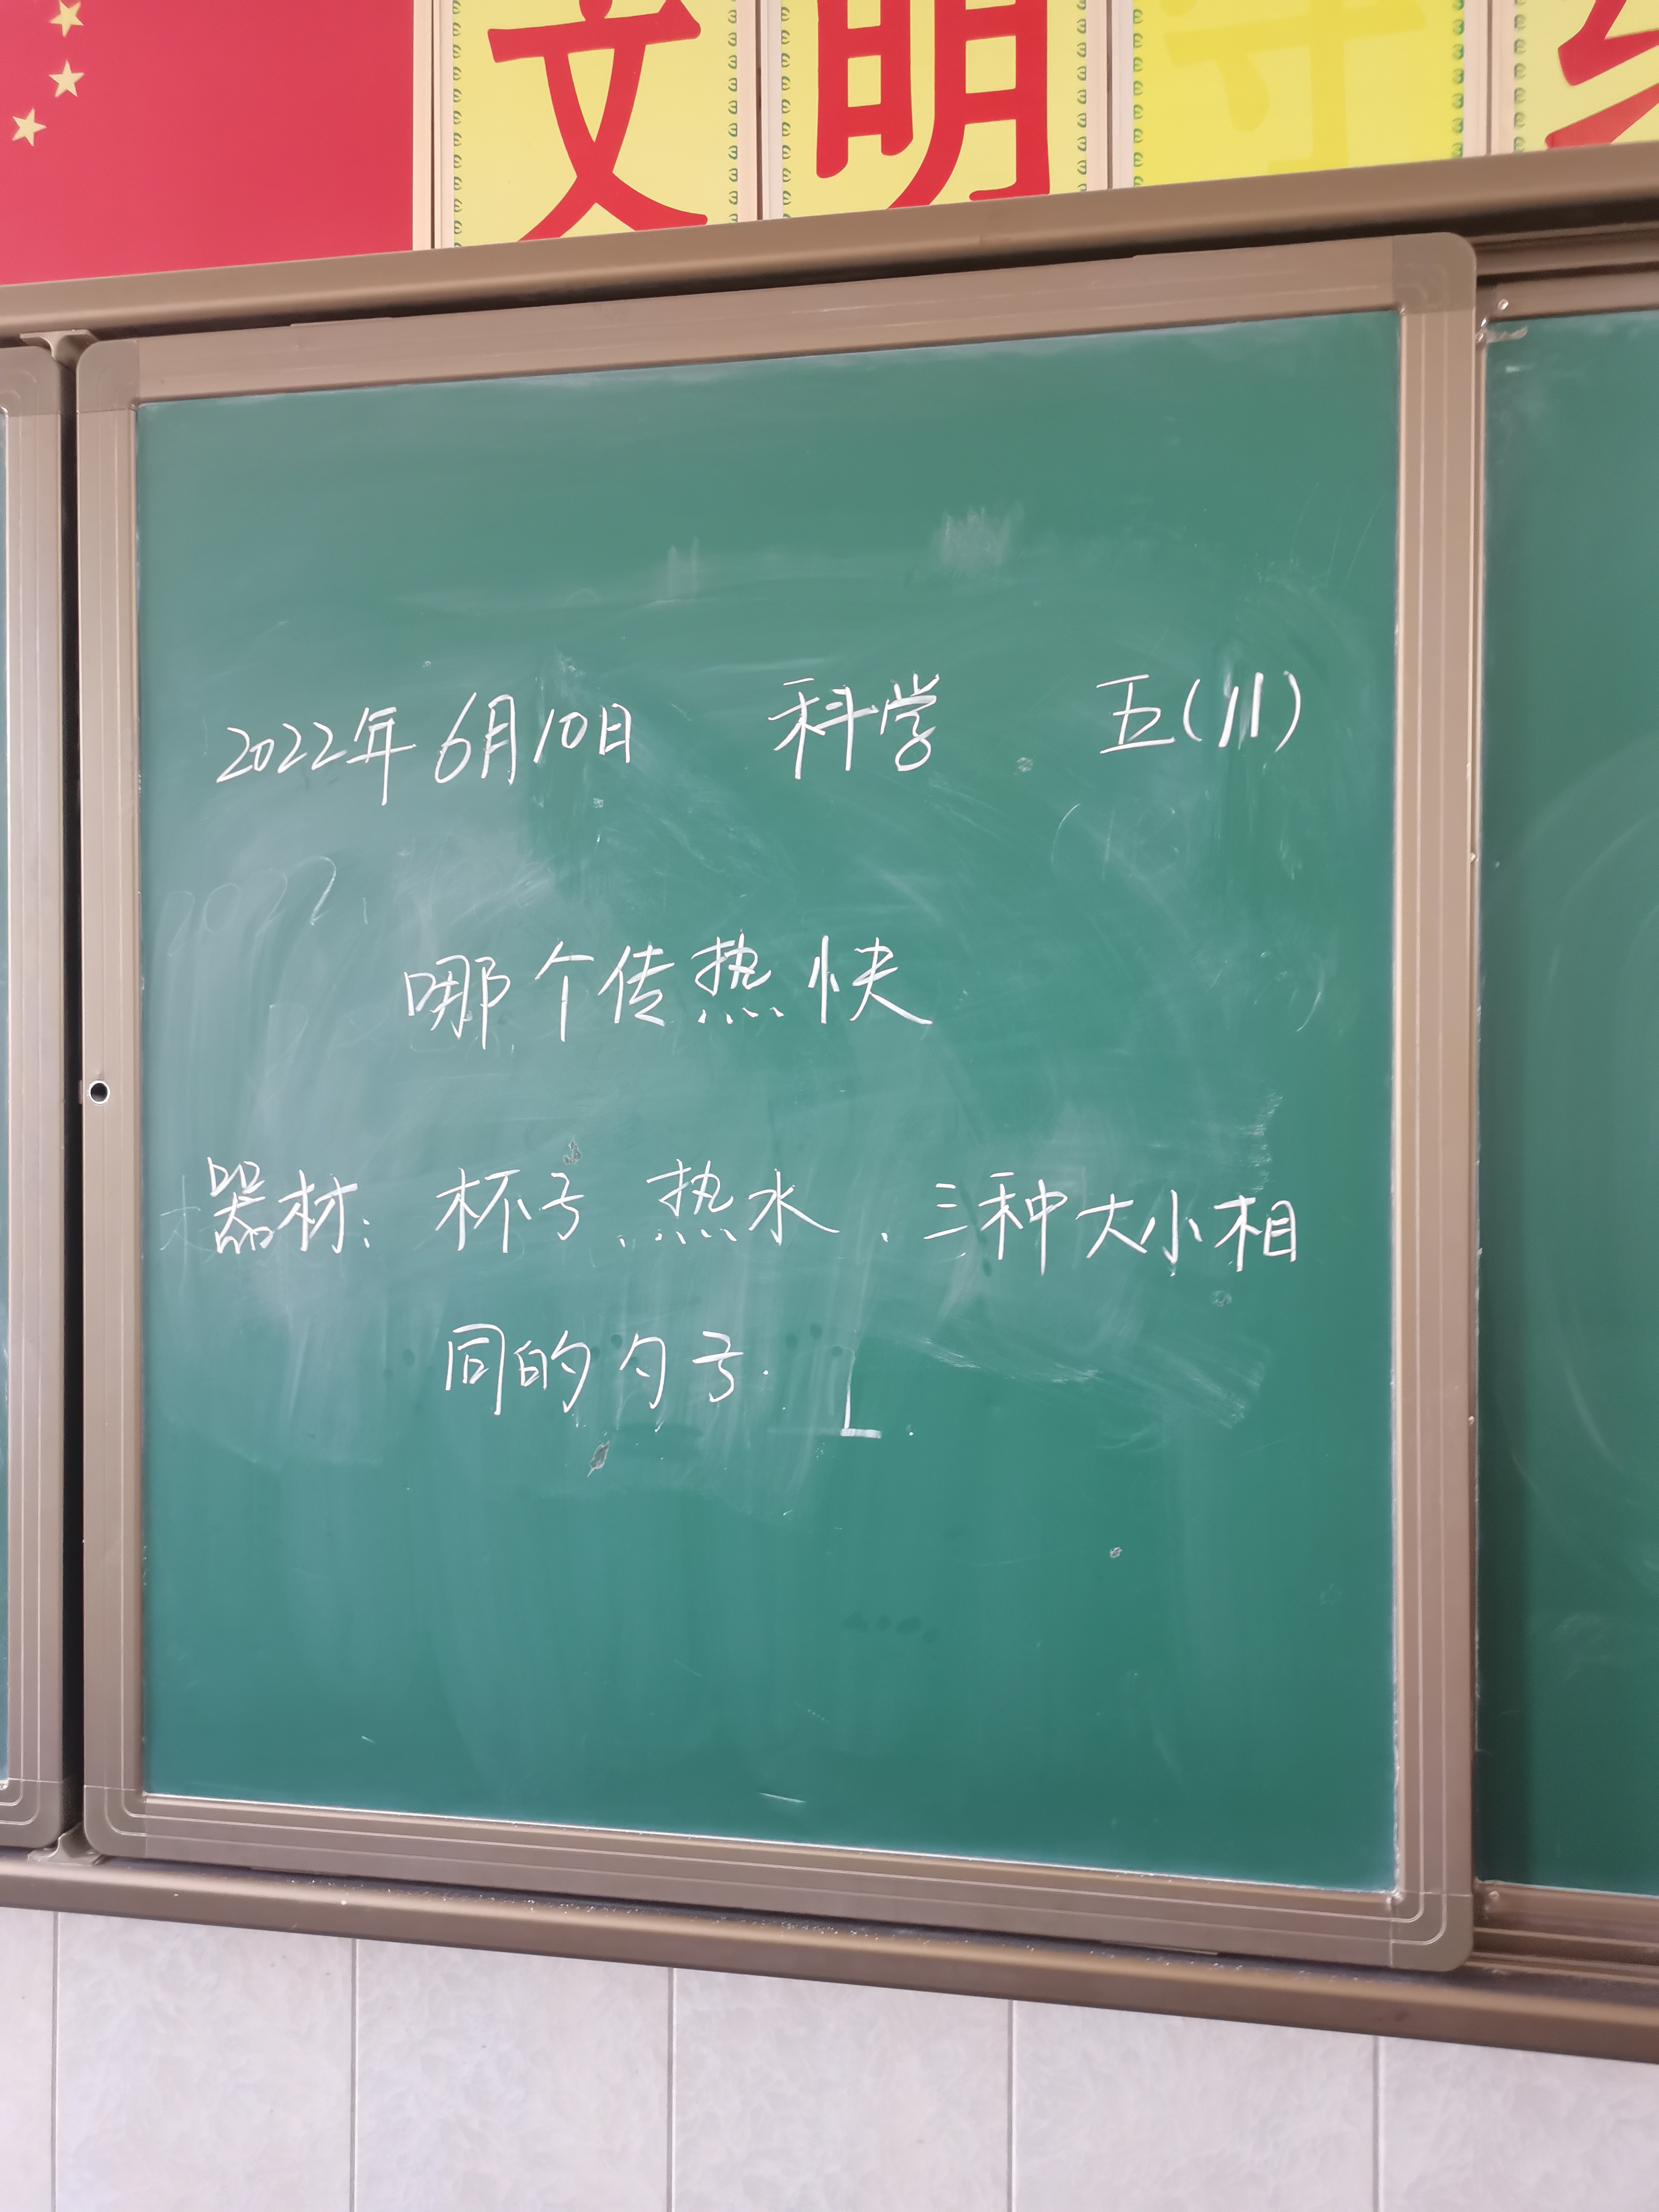 文明守
2022年6月10日 科学 五(11)
哪个传热快
器材: 杯子、热水、三种大小相
同的勺子.